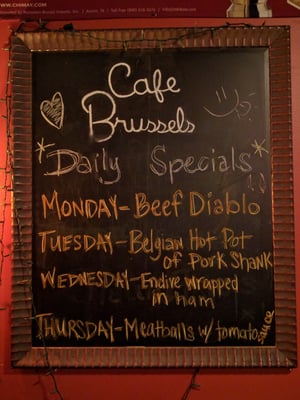 WWW.CHIMAY.COM
Cafe
Brussels
*Daily Specials*
MONDAY-Beef Diablo
TUESDAY-Belgian Hot Pot
of Pork Shank
WEDNESDAY-Endive wrapped
in ham
THURSDAY-Meatballs w/ tomato sauce